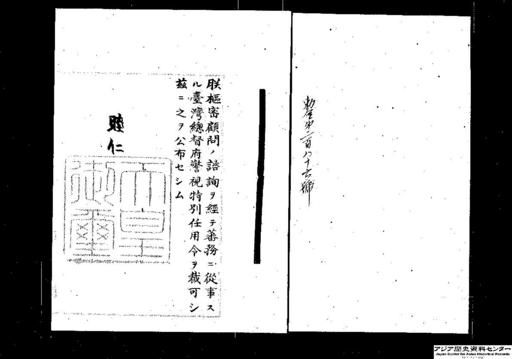 勅令第二百八十六號
朕樞密顧問ノ諮詢ヲ經テ蕃務ニ從事ス
ル臺灣總督府警視特別任用令ヲ裁可シ
茲ニ之ヲ公布セシム
睦仁
天皇
御璽
アジア歴史資料センター
Japan Center for Asian Historical Records